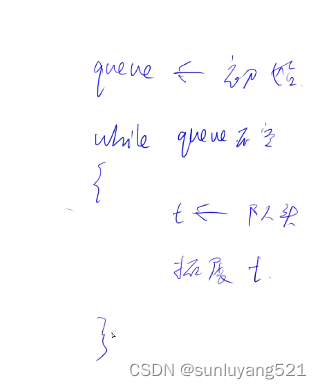 queue ← 初始
while queue不空
{
t ← 队头
拓展 t
}
CSDN @sunluyang521